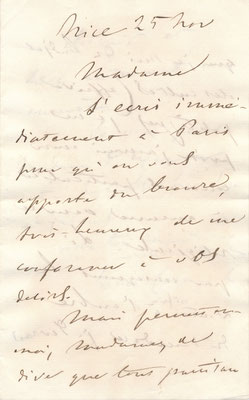 Nice 25 Nov
Madame
J'ecris immé-
diatement à Paris
pour qu'on vous
apporte du bronze,
très-heureux de me
conformer à vos
desirs.
Mais permettez
moi, Madame, de
dire que tout